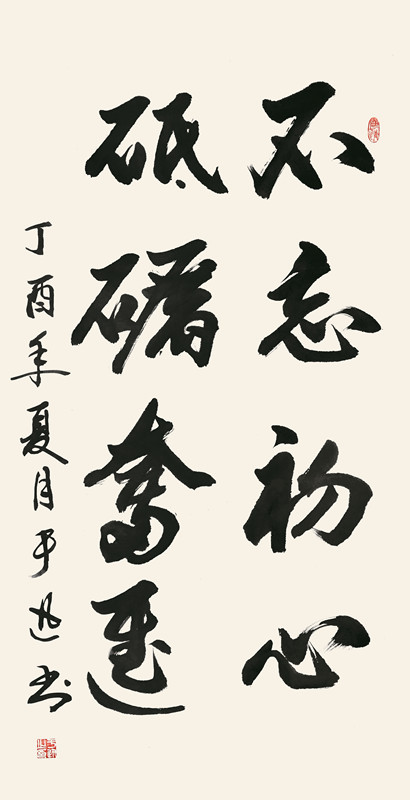 不忘初心
砥礪奮進
丁酉年夏月于迅书